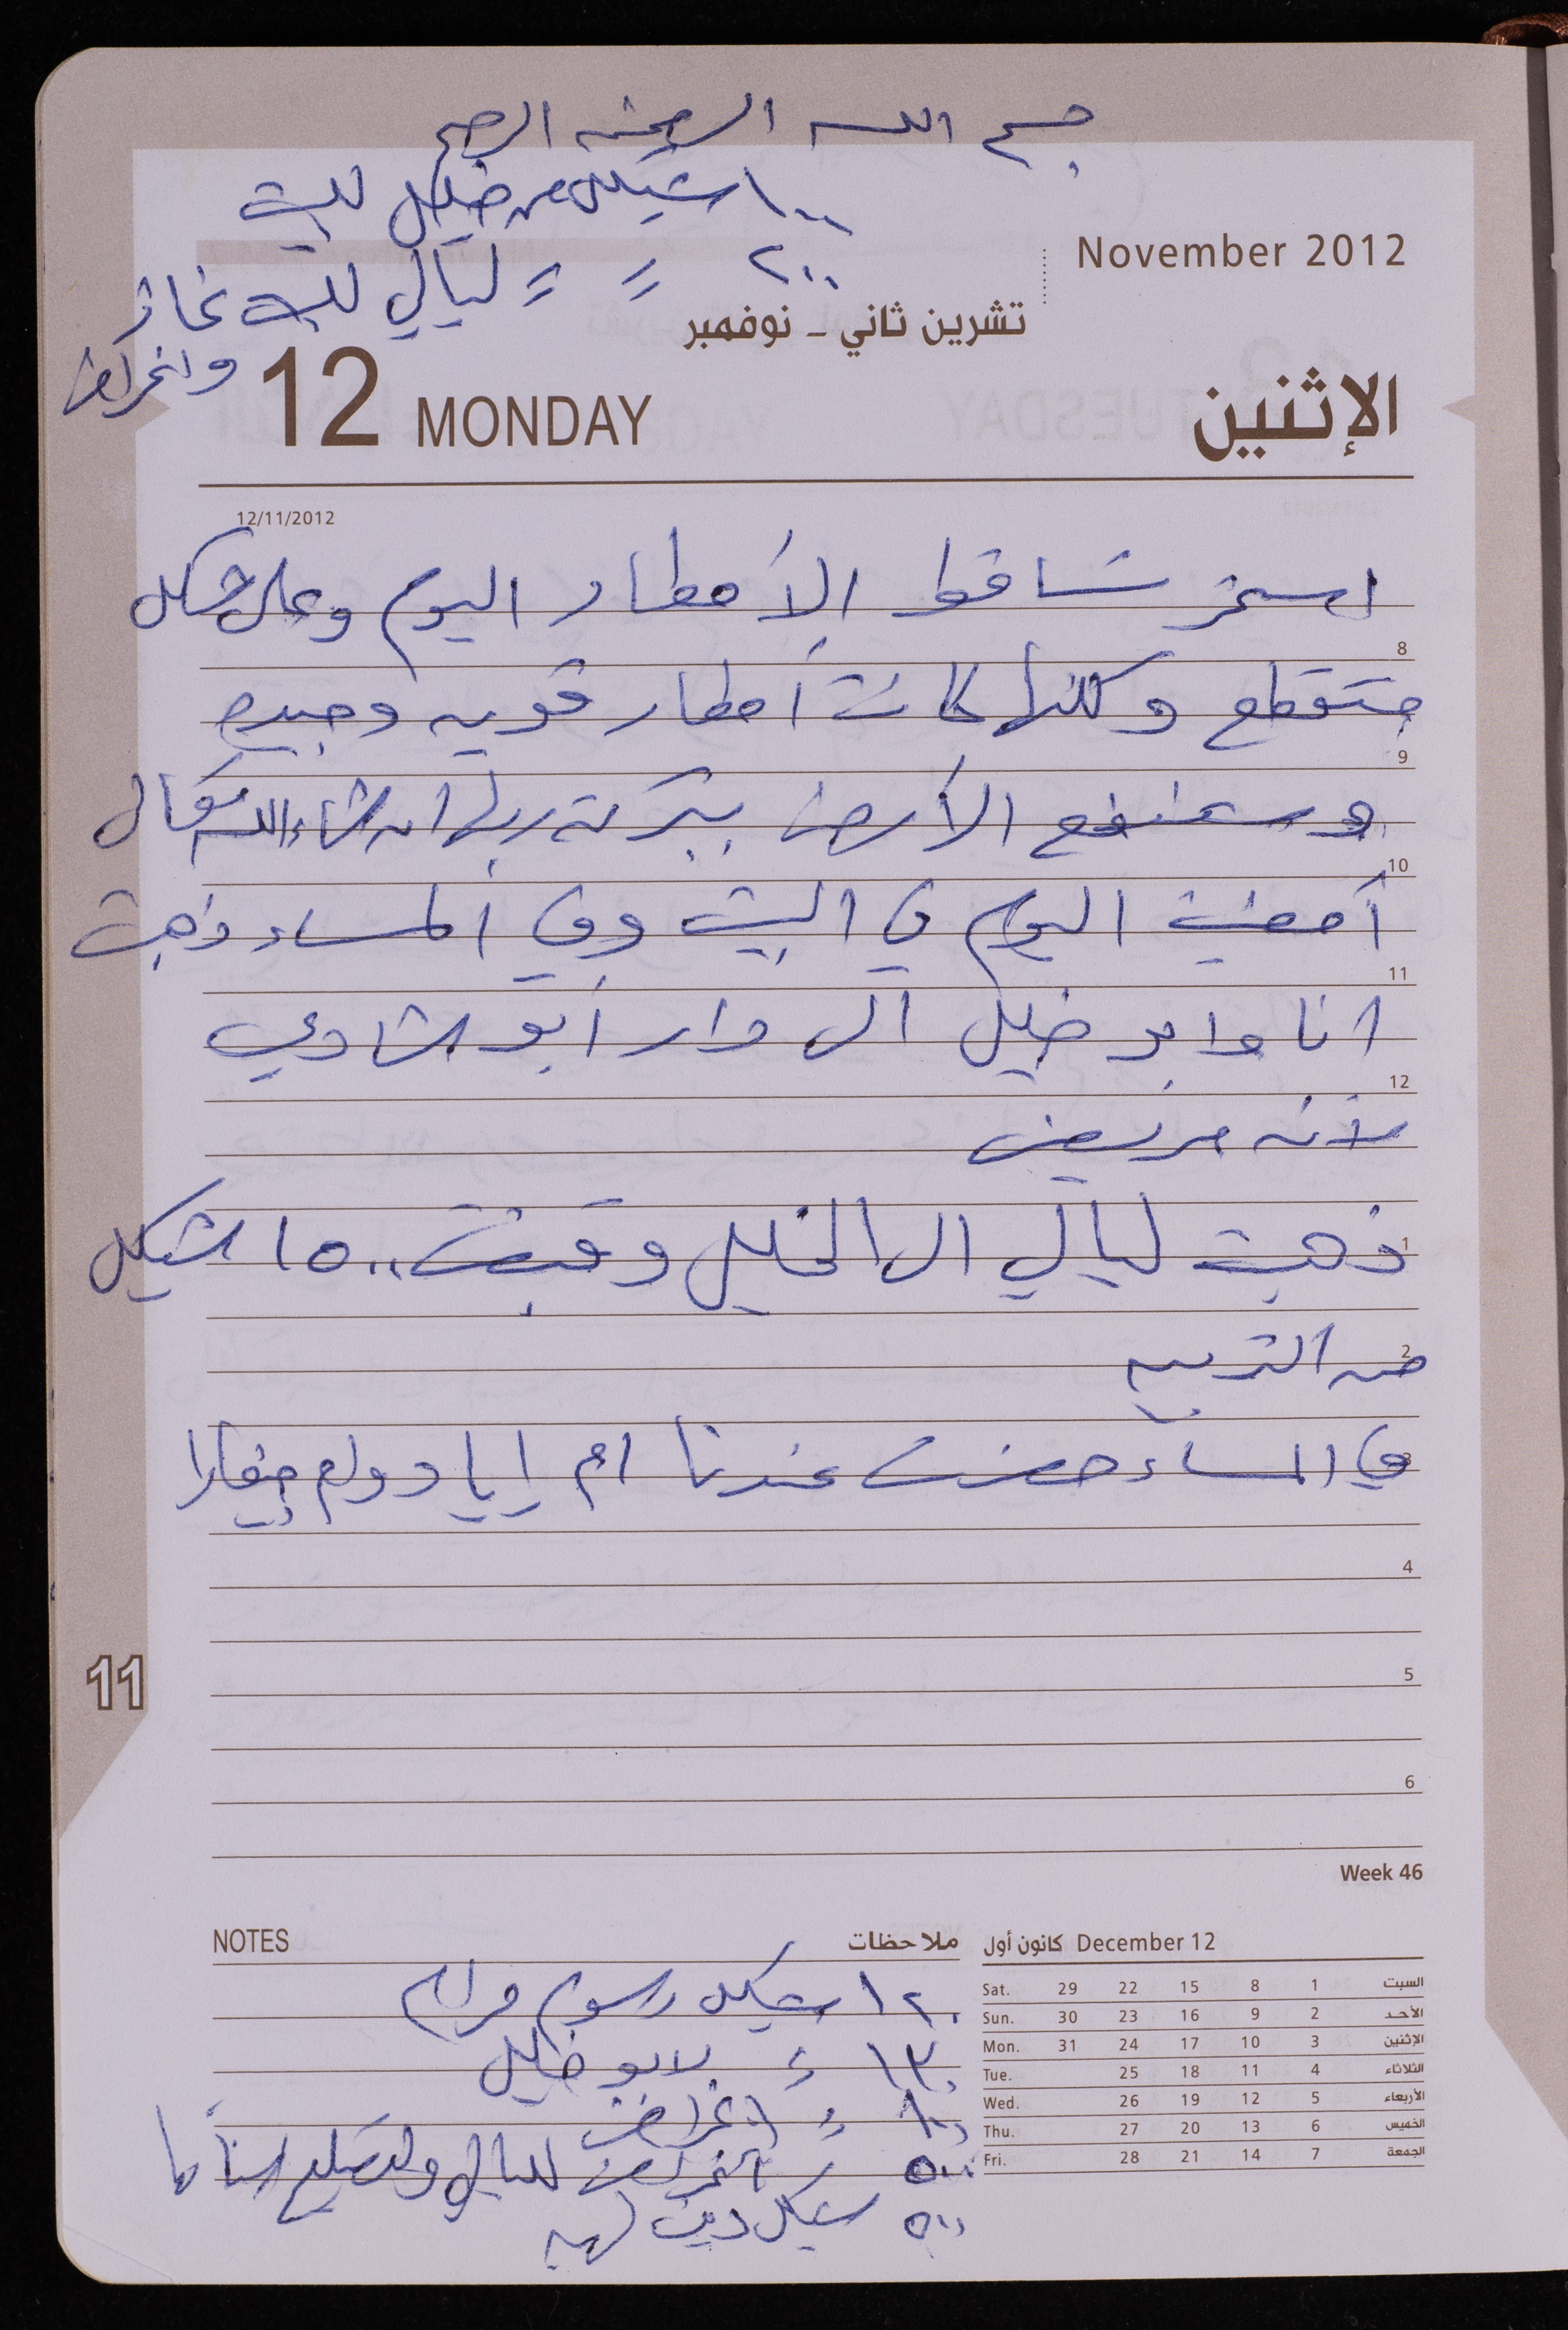 بسم الله الرحمن الرحيم
١٠٠ شيكل من خليل للبيت
٢٠٠ = = ليالي للبيت غاز
واغراض
November 2012
تشرين ثاني - نوفمبر
12 MONDAY
الإثنين
12/11/2012
استمر تساقط الأمطار اليوم وعلى شكل
8
متقطع ولكنها كانت أمطار قويه وجيده
9
وستنفع الأرض ببركة ربها ان شاء الله تعالى
10
أمضيت اليوم في البيت وفي المساء ذهبت
11
انا وابو خليل الى دار أبو الشادي
12
لأنه مريض
ذهبت ليالي الى الخليل وقبضت ١٥٠٠ شيكل
1
من التربيه
2
في المساء حضرت عندنا ام إياد ولم
3
4
5
11
6
Week 46
NOTES
ملاحظات
١٢٠ شيكل رسوم مرام
١٣٠ = لابو خليل
١٠٠ = اغراض
٥٠٠ = اغراض لليالي ولتصليح اسنانها
٥٠٠ شيكل دين
كانون أول December 12
Sat. 29 22 15 8 1 السبت
Sun. 30 23 16 9 2 الأحد
Mon. 31 24 17 10 3 الإثنين
Tue. 25 18 11 4 الثلاثاء
Wed. 26 19 12 5 الأربعاء
Thu. 27 20 13 6 الخميس
Fri. 28 21 14 7 الجمعة